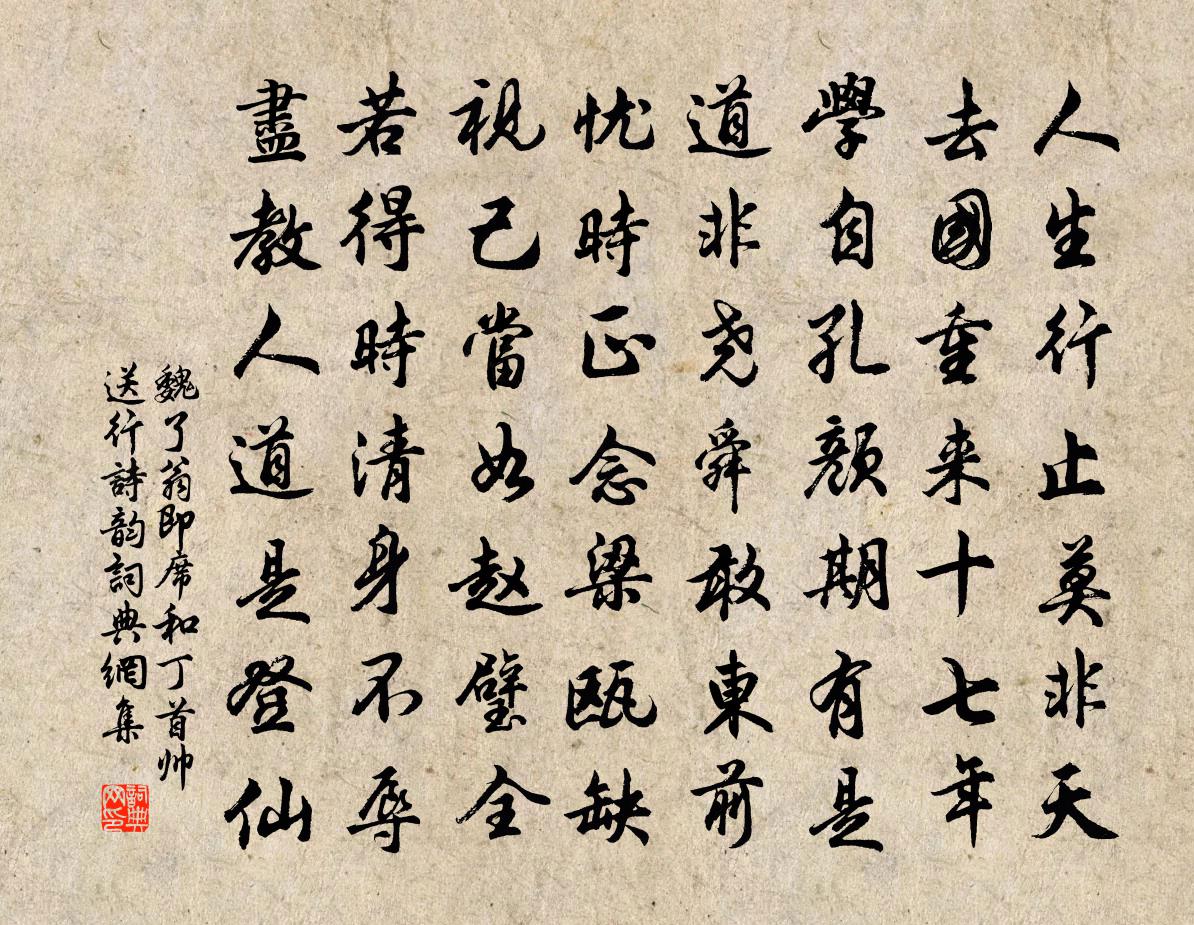 人生行止莫非天
去國重来十七年
學自孔顏期有是
道非尧舜敢東前
忧時正念梁瓯缺
視己當如赵璧全
若得時清身不辱
盡教人道是登仙
魏了翁即席和丁首帅
送行詩韵詞典網集
詞典
网印